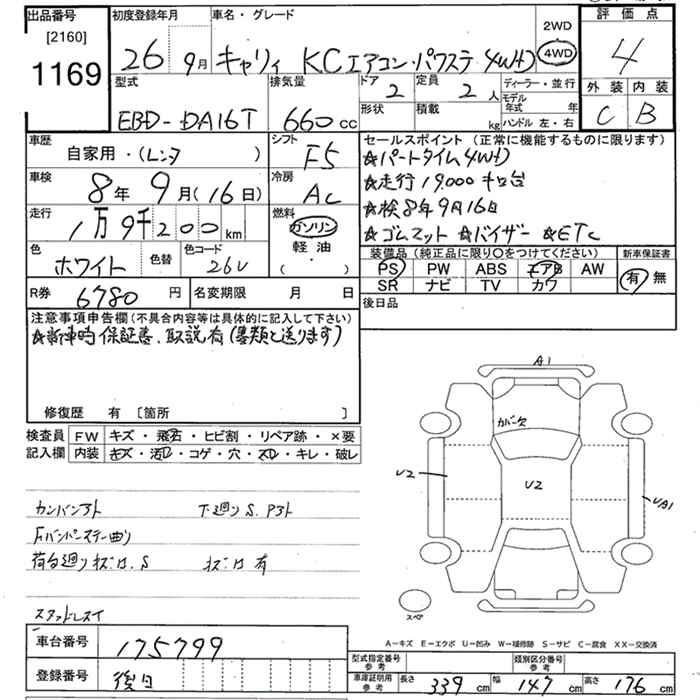 出品番号
[2160]
1169
初度登録年月
26 9月
車名・グレード
キャリィ KCエアコン・パワステ 4WD
2WD
4WD
評価点
4
外装 内装
C B
型式
EBD-DA16T
排気量
660 cc
ドア
2
定員
2 人
ディーラー・並行
形状
積載
kg
モデル年式 年
ハンドル 左・右
車歴
自家用・(レンタ )
シフト
F5
車検
8年 9月(16日)
冷房
AC
走行
1万9千200 km
燃料
ガソリン
軽油
( )
色
ホワイト
色替
色コード
26U
R券
6780 円
名変期限 月 日
セールスポイント (正常に機能するものに限ります)
☆パートタイム4WD
☆走行19,000キロ台
☆検8年9月16日
☆ゴムマット ☆バイザー ☆ETC
装備品 (純正品に限り○をつけてください)
新車保証書
PS PW ABS エアB AW
SR ナビ TV カワ
有 無
後日品
注意事項申告欄(不具合内容等は具体的に記入して下さい)
☆新車時保証書、取説有(書類と送ります)
修復歴 有 [箇所 ]
検査員記入欄
FW キズ・飛石・ヒビ割・リペア跡・×要
内装 キズ・汚れ・コゲ・穴・スレ・キレ・破レ
カンバンアト
下廻りS.Pアト
Fバンパーステー曲り
荷台廻りキズ凹.S
キズ凹有
スタッドレスタイ
A1
カバー欠
U2
U2
UA1
スペア
A-キズ E-エクボ U-凹み W-補修跡 S-サビ C-腐食 XX-交換済
車台番号
175799
登録番号
後日
型式指定番号 参考
類別区分番号 参考
車庫証明用 参考
長さ 339 cm 幅 147 cm 高さ 176 cm